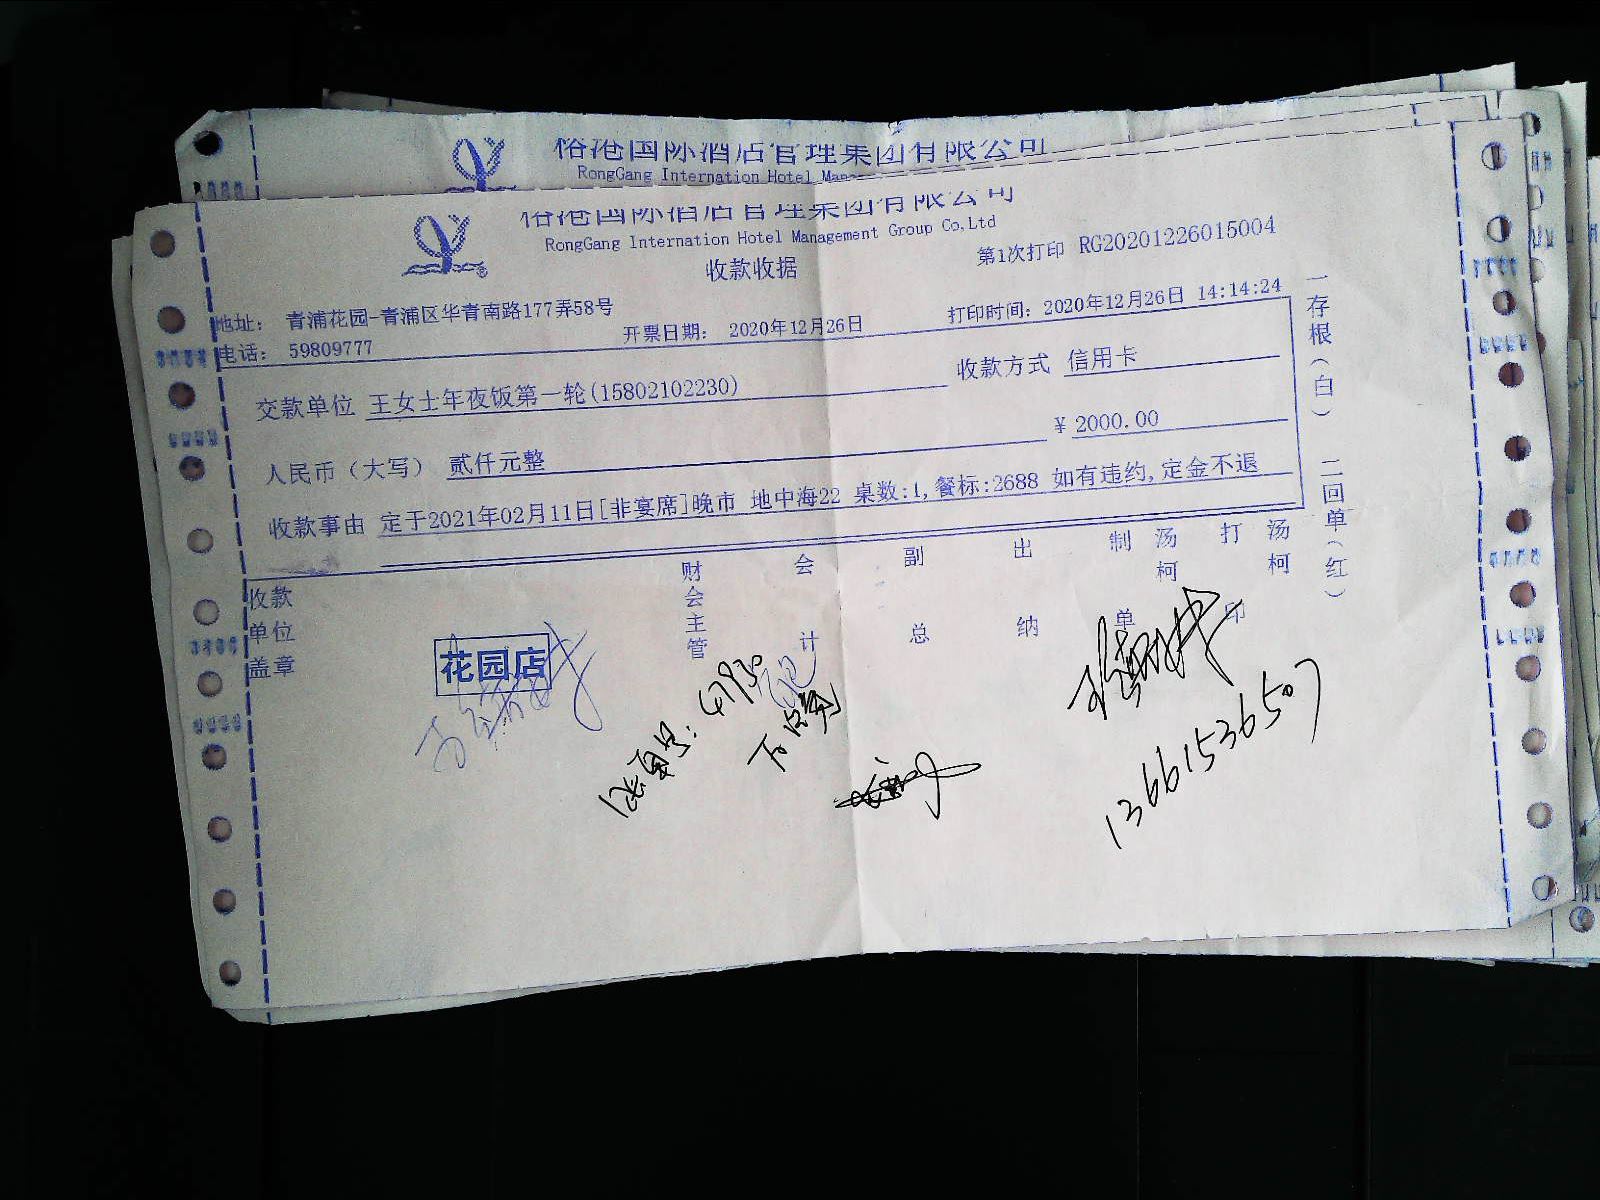 俗港国际酒店管理集团有限公司
RongGang Internation Hotel Mana
俗港国际酒店管理集团有限公司
RongGang Internation Hotel Management Group Co,Ltd
收款收据
第1次打印 RG20201226015004
地址： 青浦花园-青浦区华青南路177弄58号
电话： 59809777
开票日期： 2020年12月26日
打印时间：2020年12月26日 14:14:24
交款单位 王女士年夜饭第一轮(15802102230)
收款方式 信用卡
人民币（大写） 贰仟元整
￥2000.00
收款事由 定于2021年02月11日[非宴席]晚市 地中海22 桌数:1,餐标:2688 如有违约,定金不退
一存根（白） 二回单（红）
收款单位盖章
财会主管
会计
副总
出纳
制单
汤柯
打印
汤柯
花园店
13661536507